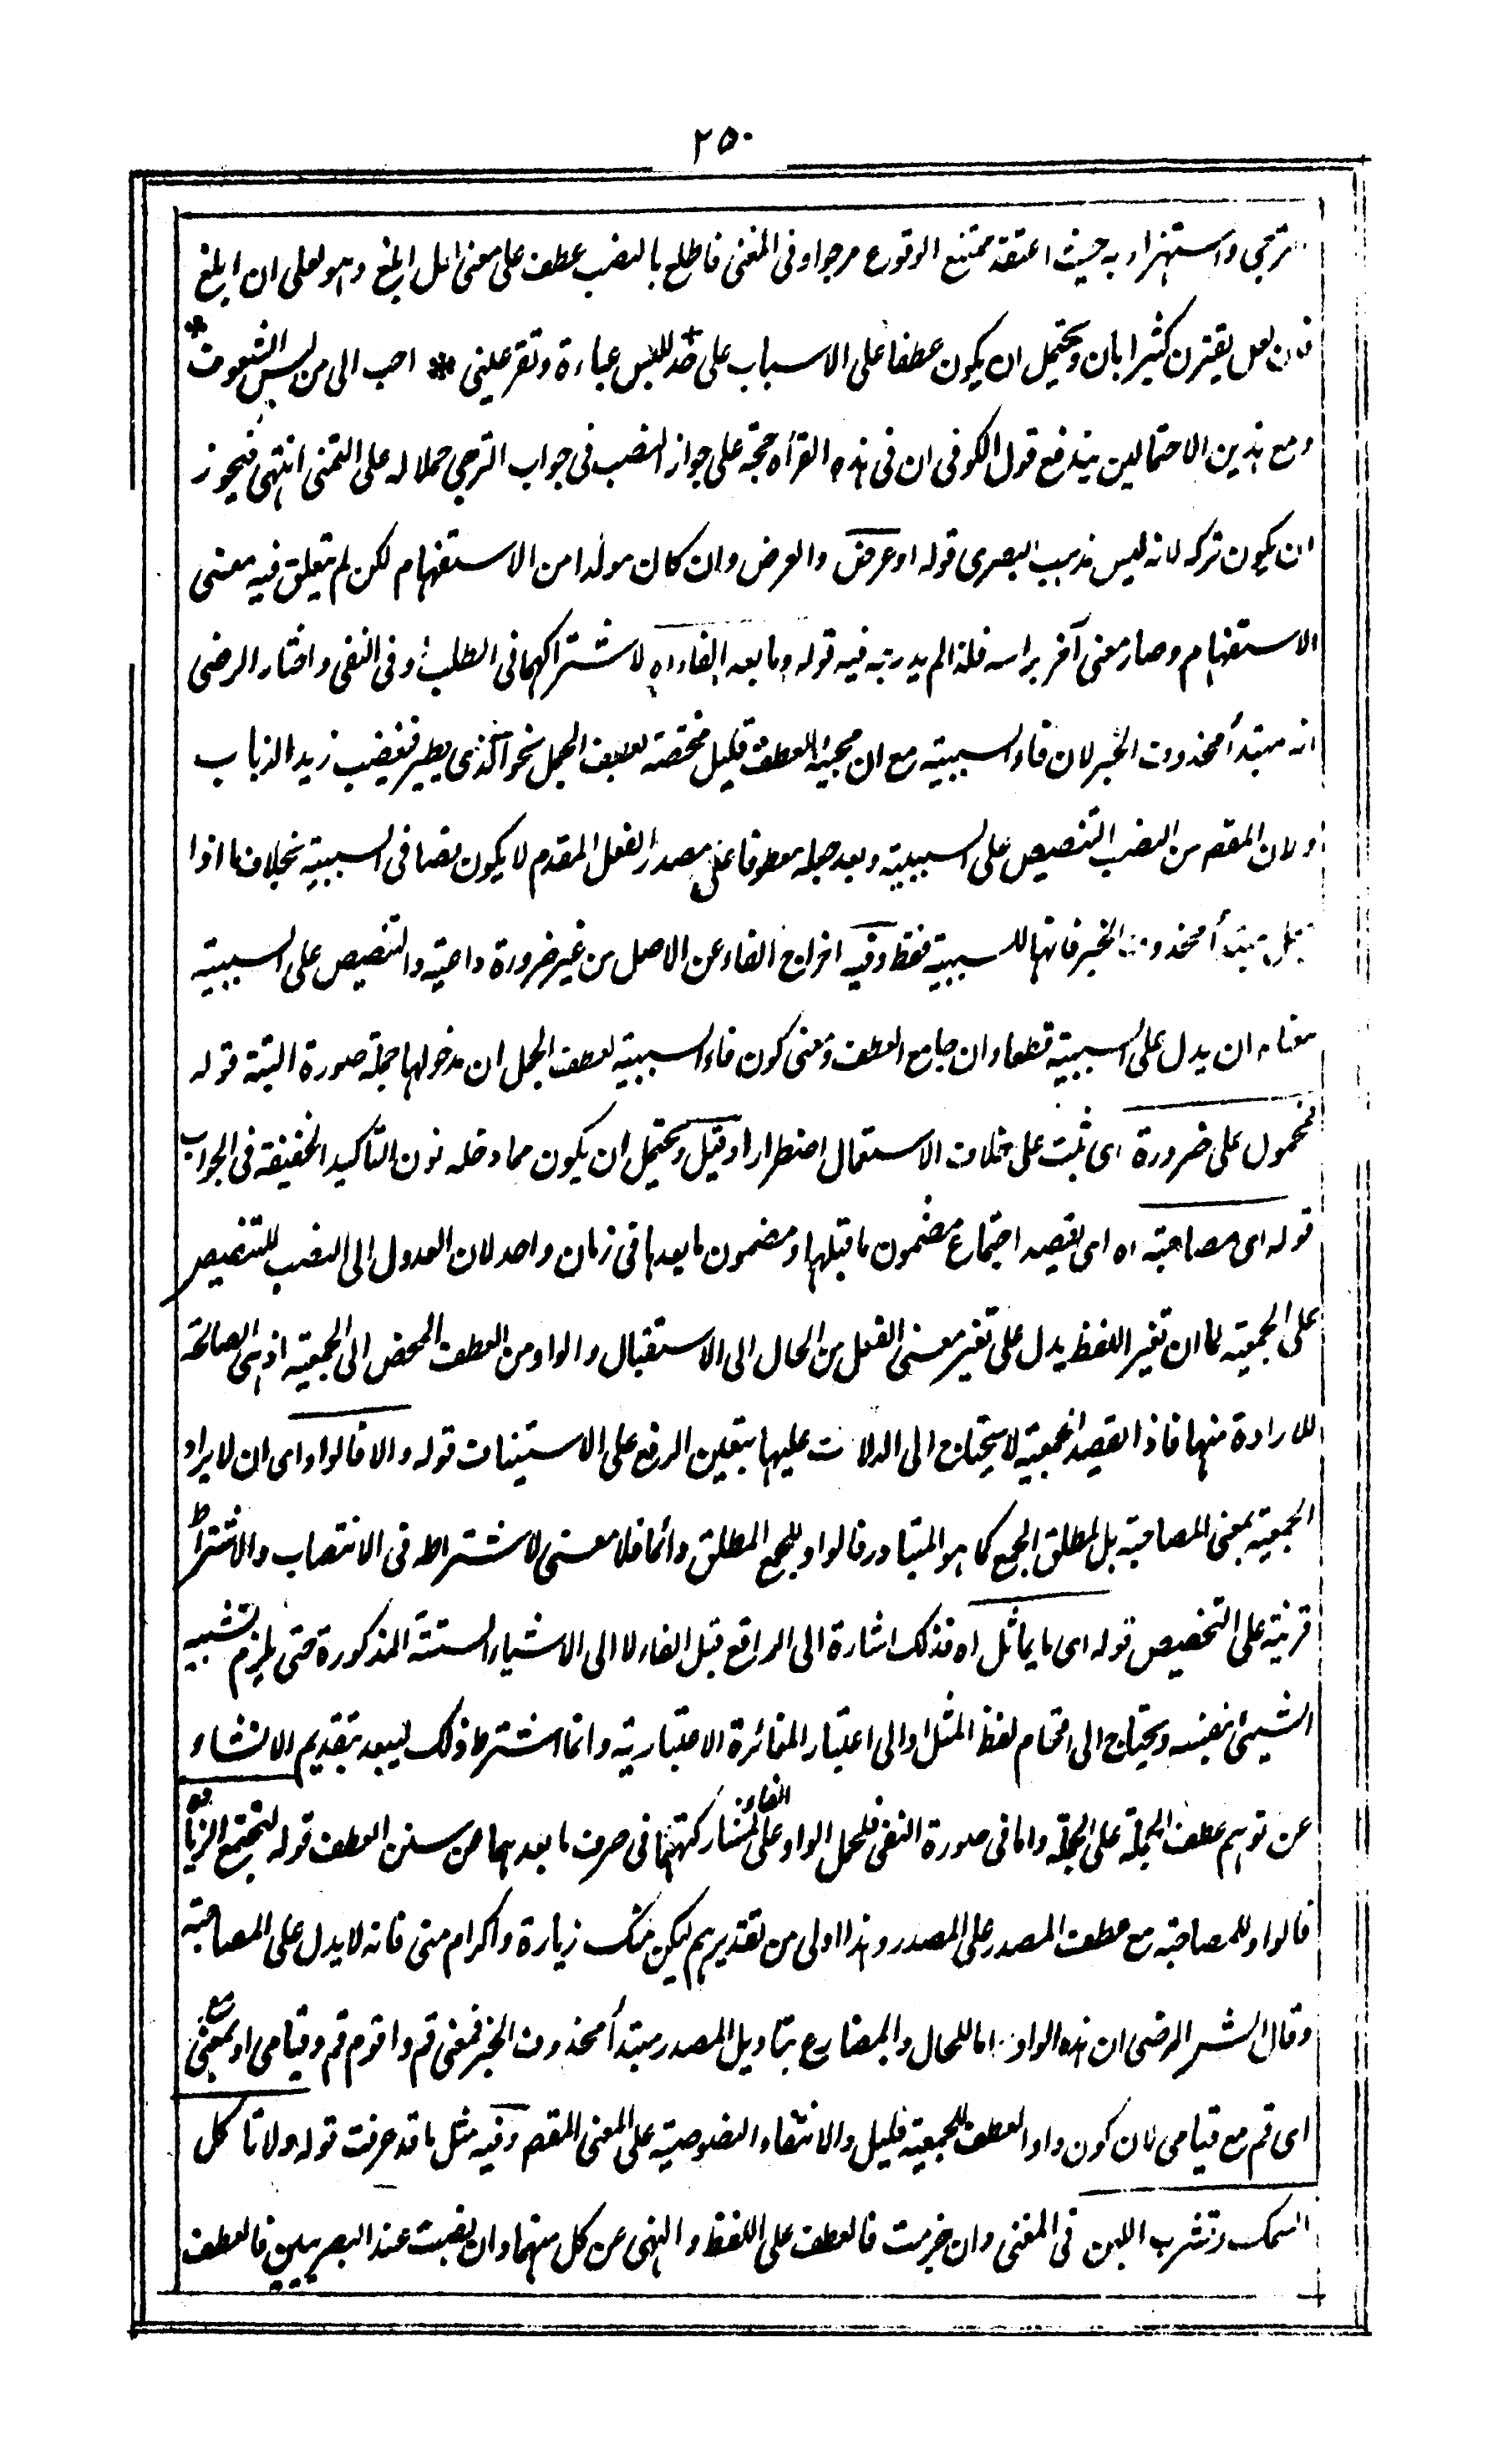 ٢٥٠
ترجى واستهزاء به حيث اعتقد ممتنع الوقوع مرجوا وفى المغنى فاطلع بالنصب عطف على معنى لعلى ابلغ وهو لعلى ان ابلغ
فان لعل يقترن كثيرا بان ويحتمل ان يكون عطفا على الاسباب على حد للبس عباءة وتقر عينى * احب الى من لبس الشفوف *
ومع هذين الاحتمالين يندفع قول الكوفى ان فى هذه القرأه حجة على جواز النصب فى جواب الترجى حملا له على التمنى انتهى فيجوز
ان يكون تركه لانه ليس مذهب البصرى قوله او عرض والعرض وان كان مولدا من الاستفهام لكن لم يتعلق فيه معنى
الاستفهام وصار معنى آخر براسه فلذا لم يدرجه فيه قوله وما بعد الفاء اه لاشتراكهما فى الطلب وفى النفى واختار الرضى
انه مبتدأ محذوف الخبر لان فاء السببية مع ان مجيئها للعطف قليل مختصة لعطف الجمل نحو الذى يطير فيغضب زيد الذباب
ولان المقصد من النصب التنصيص على السببية وبعد جعله معطوفا على مصدر الفعل المقدم لا يكون نصا فى السببية بخلاف ما اذا
جعل مبتدأ محذوف الخبر فانها للسببية فقط وفيه اخراج الفاء عن الاصل من غير ضرورة داعية والتنصيص على السببية
معناه ان يدل على السببية قطعا وان جامع العطف ومعنى كون فاء السببية لعطف الجمل ان مدخولها جملة صورة البتة قوله
فمحمول على ضرورة اى ثبت على خلاف الاستعمال اضطرارا وقيل ويحتمل ان يكون مما دخله نون التاكيد الخفيفة فى الجواب
قوله اى مصاحبة اه اى يقصد اجتماع مضمون ما قبلها ومضمون ما بعدها فى زمان واحد لان العدول الى النصب للتنصيص
على الجمعية لما ان تغير اللفظ يدل على تغير معنى الفعل من الحال الى الاستقبال والواو من العطف المحض الى الجمعية اذ هى الصالحة
للارادة منها فاذا لم يقصد الجمعية لا يحتاج الى الدلالة عليها بتعين الرفع على الاستيناف قوله والا فالواو اى ان لا يراد
الجمعية بمعنى المصاحبة بل لمطلق الجمع كما هو المتبادر فالواو للجمع المطلق دائما فلا معنى لاشتراطه فى الانتصاب والاشتراط
قرينة على التخصيص قوله اى ما يماثل اه فذلك اشارة الى الواقع قبل الفاء لا الى الاشياء الستة المذكورة حتى يلزم تشبيه
الشيئ بنفسه ويحتاج الى اقحام لفظ المثل او الى اعتبار المغائرة الاعتبارية وانما اشترط ذلك ليبعد بتقديم الانشاء
عن توهم عطف الجملة على الجملة واما فى صورة النفى فلحمل الواو على الفاء لمشاركتهما فى صرف ما بعدهما من سنن العطف قوله لتجتمع الزيارة
فالواو للمصاحبة مع عطف المصدر على المصدر وهذا اولى من تقديرهم ليكن منك زيارة واكرام منى فانه لا يدل على المصاحبة
وقال الشر الرضى ان هذه الواو اما للحال والمضارع بتاويل المصدر مبتدأ محذوف الخبر فمعنى قم واقوم قم وقيامى او بمعنى مع
اى قم مع قيامى لان كون واو العطف للجمعية قليل والانتفاء النصوصية على المعنى المقصد وفيه مثل ما قد عرفت قوله ولا تاكل
السمك وتشرب اللبن فى المغنى وان جزمت فالعطف على اللفظ والنهى عن كل منهما وان نصبت عند البصريين فالعطف